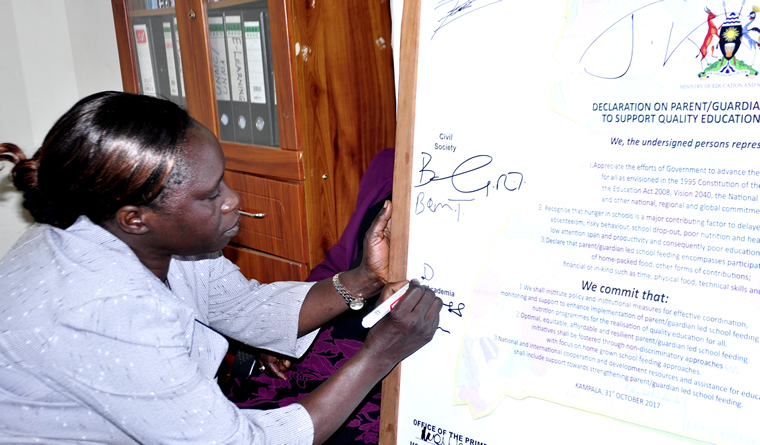 MINISTRY OF EDUCATION AND
DECLARATION ON PARENT/GUARDIAN
TO SUPPORT QUALITY EDUCATION
We, the undersigned persons repres
1.Appreciate the efforts of Government to advance the
for all as envisioned in the 1995 Constitution of the
the Education Act 2008, Vision 2040, the National
and other national, regional and global commitme
2. Recognise that hunger in schools is a major contributing factor to delaye
absenteeism, risky behaviour, school drop-out, poor nutrition and hea
low attention span and productivity and consequently poor education
3.Declare that parent/guardian led school feeding encompasses participatio
of home-packed food, other forms of contributions;
financial or in-kind such as time, physical food, technical skills and
We commit that:
1.We shall institute policy and institutional measures for effective coordination,
monitoring and support to enhance implementation of parent/guardian led school feeding
nutrition programmes for the realisation of quality education for all.
2.Optimal, equitable, affordable and resilient parent/guardian led school feeding
initiatives shall be fostered through non-discriminatory approaches
with focus on home grown school feeding approaches.
3.National and international cooperation and development resources and assistance for educa
shall include support towards strengthening parent/guardian led school feeding.
KAMPALA, 31ST OCTOBER 2017
Civil
Society
ademia
OFFICE OF THE PRIME
E LEARNING